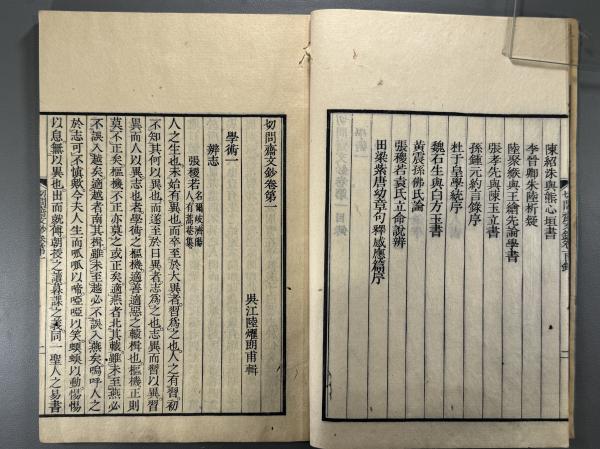 陳紹洙與熊心垣書
李晉卿朱陸析疑
陸聚緱與王繪先論學書
張孝先與陳玉立書
孫鍾元約言錄序
杜于皇學統序
魏石生與白方玉書
黃震孫佛氏論
張稷若袁氏立命說辨
田梁紫唐幼章句釋感應篇序
切問齋文鈔卷第一
吳江陸燿朗甫輯
學術一
辨志
張稷若名爾岐濟陽人有蒿菴集
人之生也未始有異也而卒至於大異者習爲之也人之有習初
不知其何以異也而遂至於日異者志爲之也志異而習以異習
異而人以異志也者學術之樞機適善適惡之轅楫也樞機正則
莫不正矣樞機不正亦莫之或正矣適燕者北其轅雖未至燕必
不誤入越矣適越者南其楫雖未至越必不誤入燕矣嗚呼人之
於志可不愼歟今夫人生而呱呱以啼啞啞以笑蝡蝡以動惕惕
以息無以異也出而就傅朝授之讀暮課之義同一聖人之易書